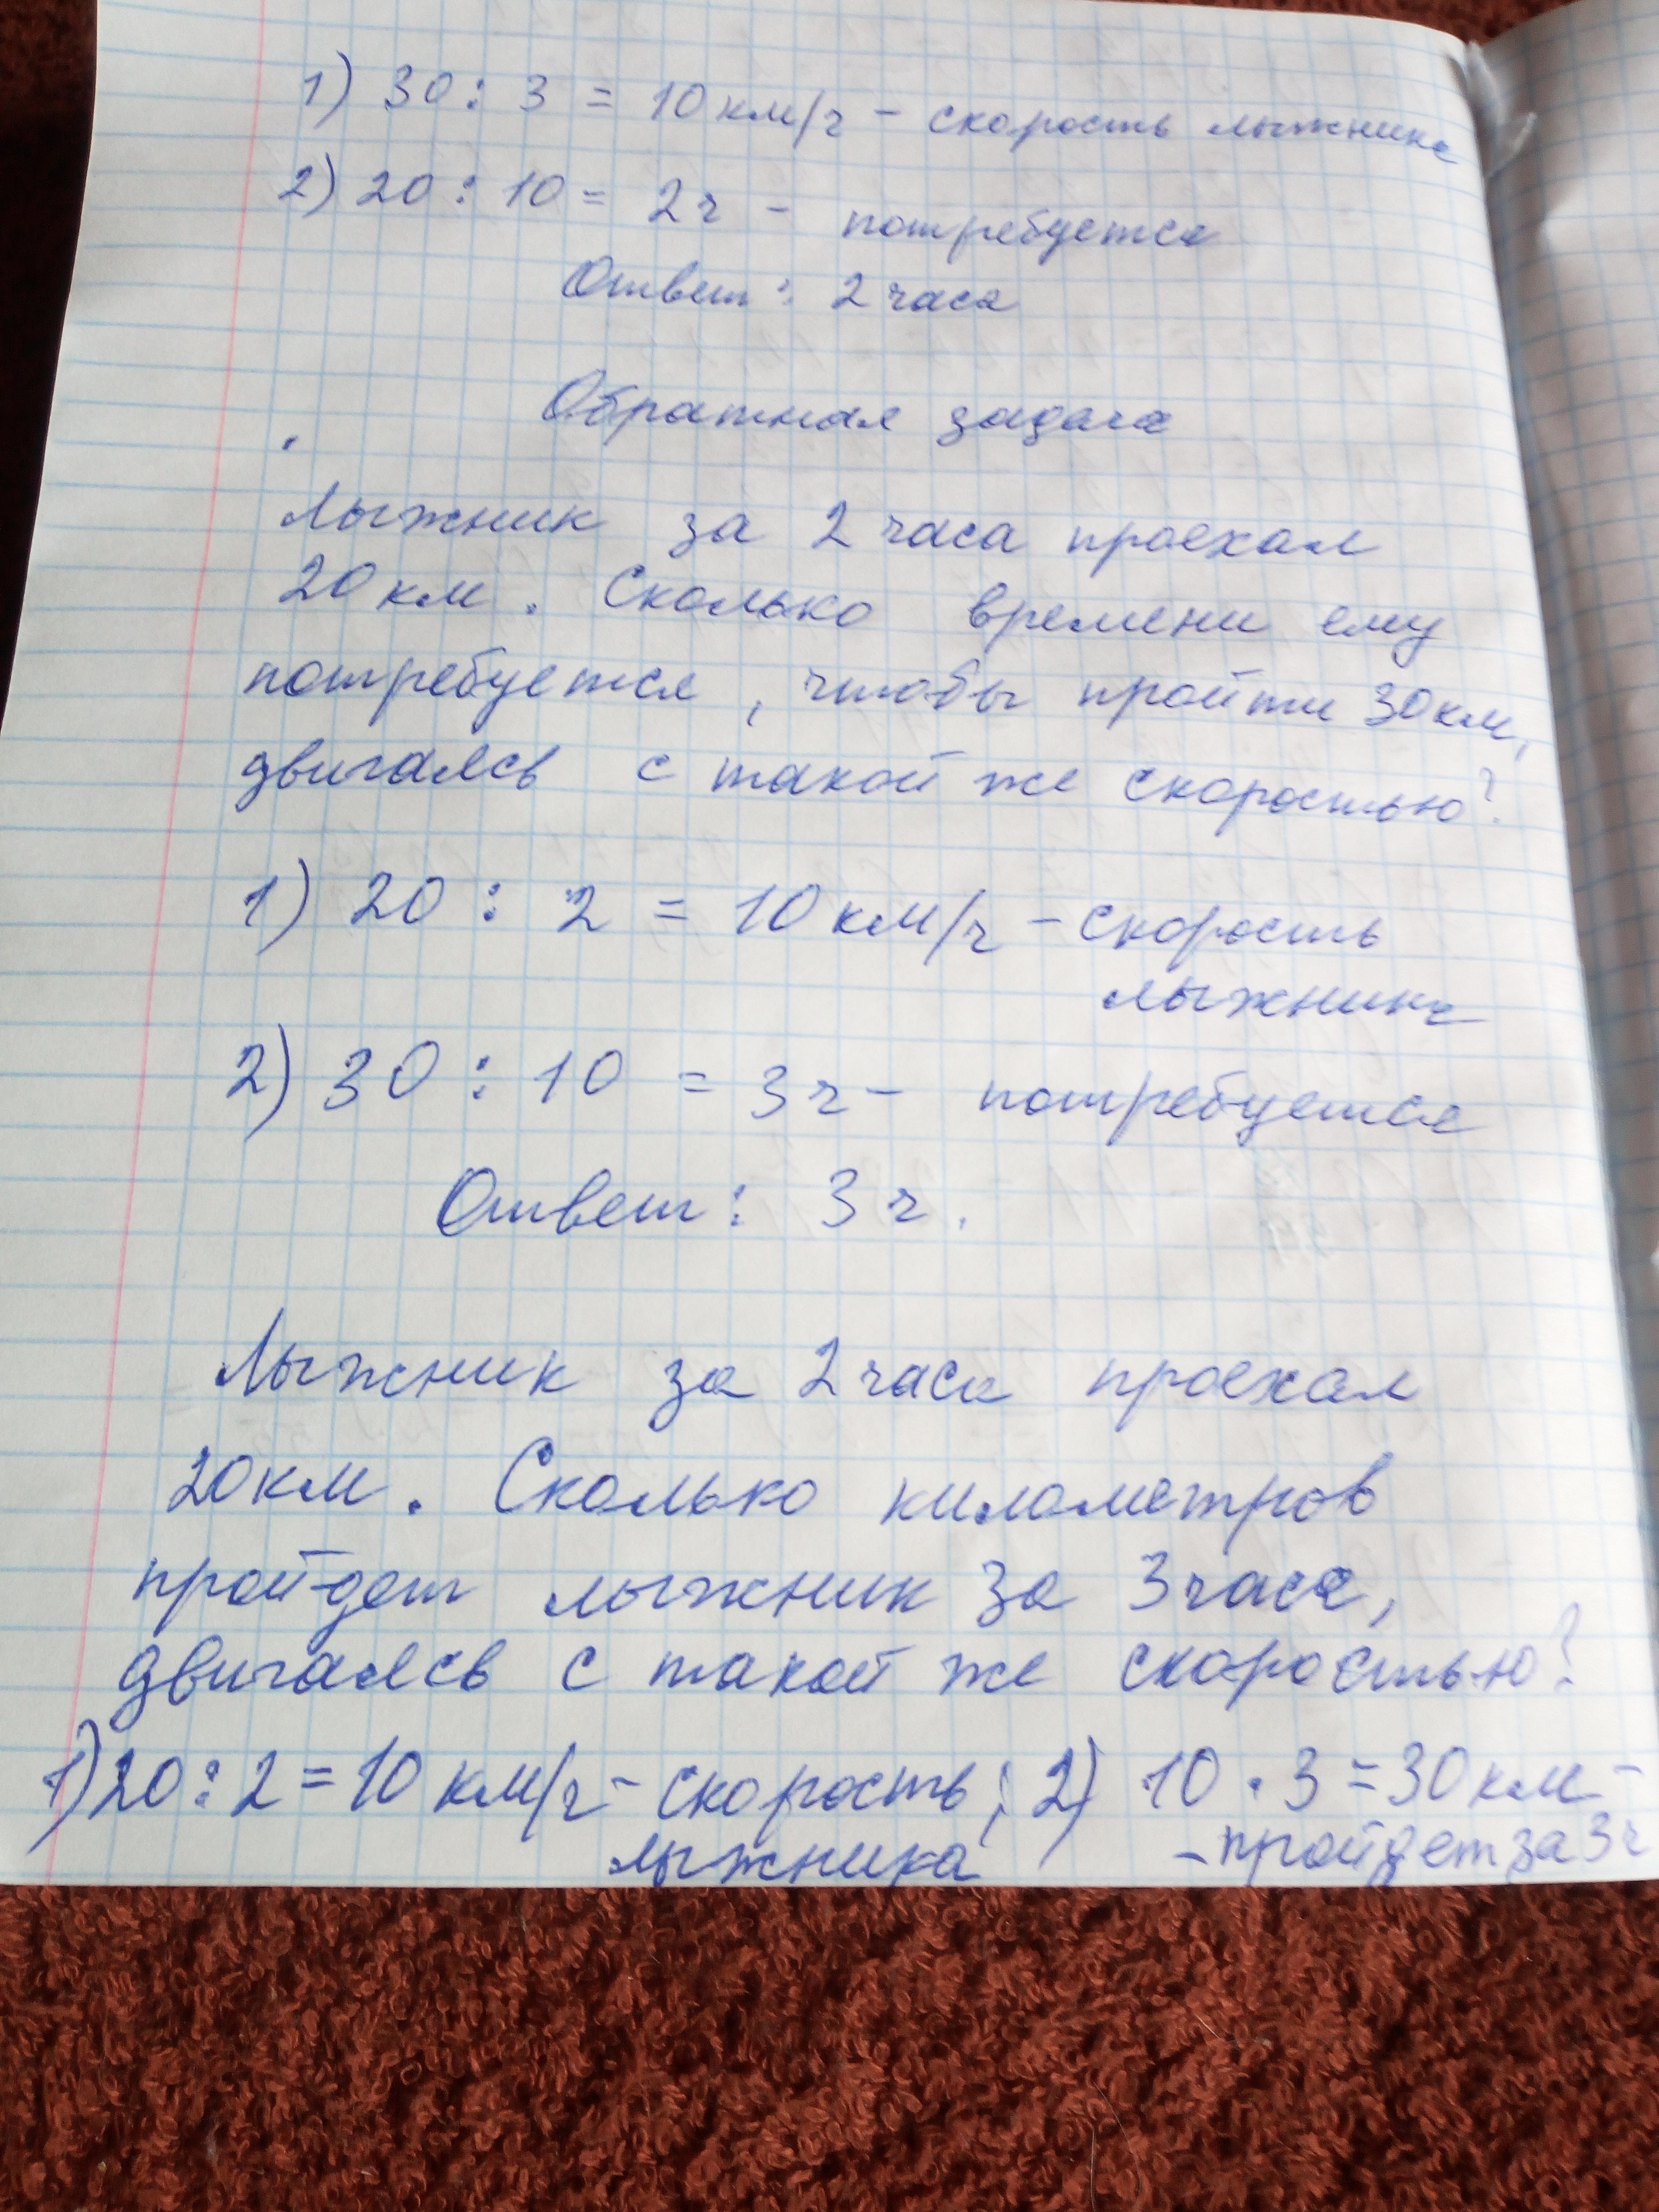 1) 30 : 3 = 10 км/ч - скорость лыжника
2) 20 : 10 = 2 ч - потребуется
Ответ : 2 часа
Обратная задача
Лыжник за 2 часа проехал
20 км. Сколько времени ему
потребуется, чтобы пройти 30 км,
двигаясь с такой же скоростью?
1) 20 : 2 = 10 км/ч - скорость
лыжника
2) 30 : 10 = 3 ч - потребуется
Ответ : 3 ч.
Лыжник за 2 часа проехал
20 км. Сколько километров
пройдет лыжник за 3 часа,
двигаясь с такой же скоростью?
1) 20 : 2 = 10 км/ч - скорость ; 2) 10 · 3 = 30 км -
лыжника - пройдет за 3 ч